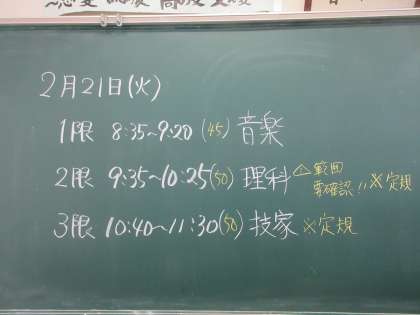 2月21日(火)
1限 8:35~9:20 (45) 音楽
2限 9:35~10:25(50) 理科 △範囲
要確認!! ※定規
3限 10:40~11:30(50) 技家 ※定規